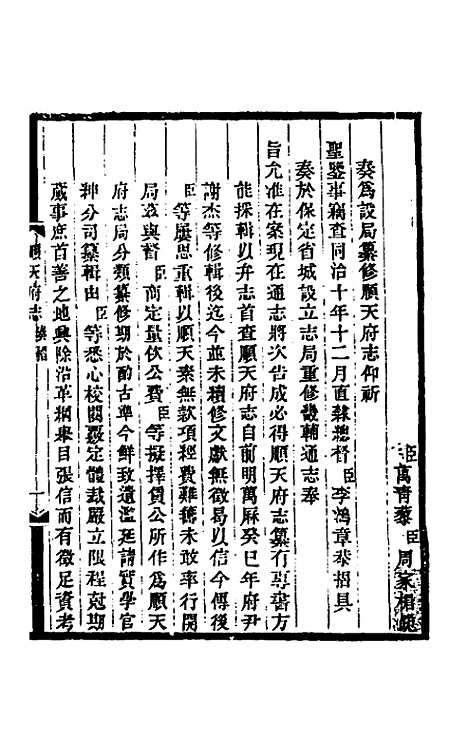 臣萬青藜臣周家楣跪
奏爲設局纂修順天府志仰祈
聖鑒事竊查同治十年十二月直隸總督臣李鴻章恭摺具
奏於保定省城設立志局重修畿輔通志奉
旨允准在案現在通志將次告成必得順天府志纂有專書方
能採輯以弁志首查順天府志自前明萬厤癸巳年府尹
謝杰等修輯後迄今並未續修文獻無徵曷以信今傳後
臣等屢思重輯以順天素無款項經費難籌未敢率行開
局茲與督臣商定量佽公費臣等擬擇賃公所作爲順天
府志局分類纂修期於酌古準今鮮致遺濫延請實學官
紳分司纂輯由臣等悉心校閱覈定體裁嚴立限程尅期
蕆事庶首善之地興除沿革綱舉目張信而有徵足資考
順天府志
奏摺
一